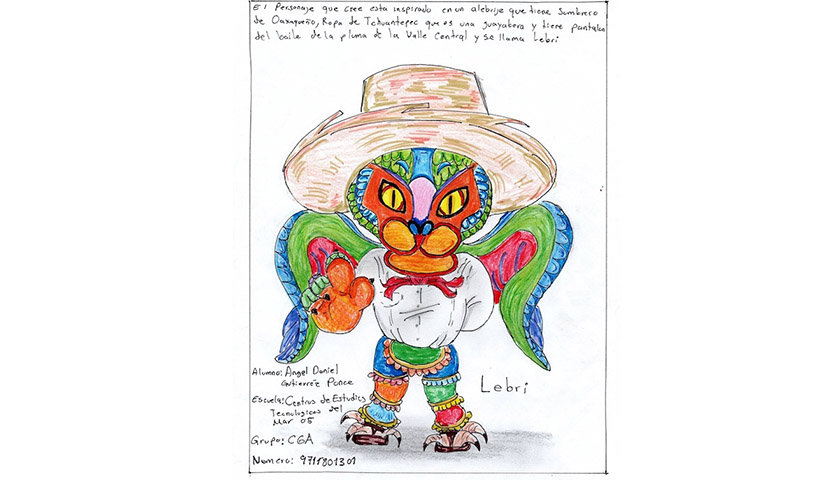 El Personaje que cree esta inspirado en un alebrije que tiene Sombrero
de Oaxaqueño, Ropa de Tehuantepec que es una guayabera y tiene pantalon
del baile de la pluma de la Valle Central y se llama Lebri
Lebri
Alumno: Angel Daniel
Gutierrez Ponce
Escuela: Centros de Estudios
Tecnologicos del
Mar 05
Grupo: CGA
Numero: 9711801301